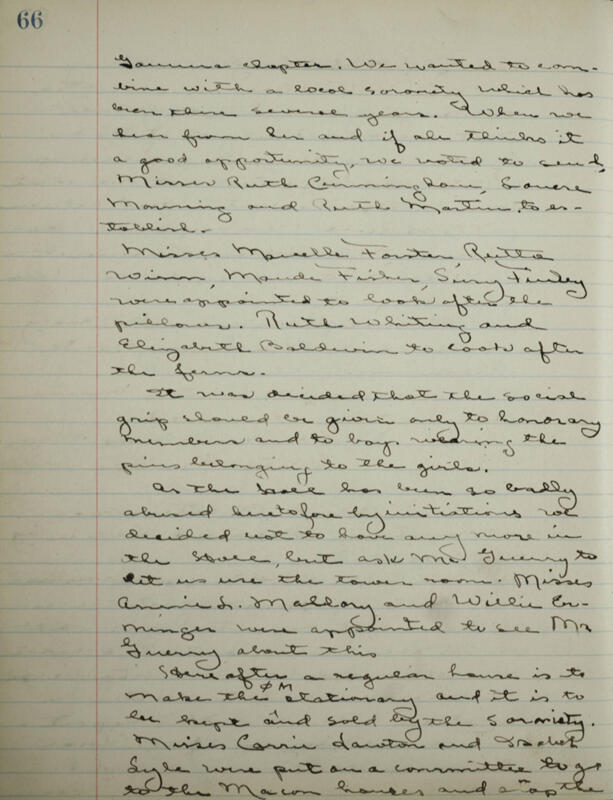 66
Gamma chapter. We wanted to com-
bine with a local sorority which has
been there several years. When we
hear from her and if she thinks it
a good opportunity, we voted to send
Misses Ruth Cunningham, Louise
Manning and Ruth Martin, to es-
tablish.
Misses Marcelle Forster, Rutha
Winn, Maude Fisher, Finley
were appointed to look after the
pillows. Ruth Whiting and
Elizabeth Baldwin to look after
the ferns.
It was decided that the social
grip should be given only to honorary
members and to boys wearing the
pins belonging to the girls.
As the Hall has been so badly
abused heretofore by initiations we
decided not to have any more in
the Hall, but ask Mr Guerry to
let us use the tower room. Misses
Annie L. Mallary and Willie Er-
minger were appointed to see Mr
Guerry about this
Here after a regular house is to
make the ΦM stationary and it is to
be kept and sold by the Sorority.
Misses Carrie Lawton and
Lyle were put on a committee to go
to the Macon houses and the